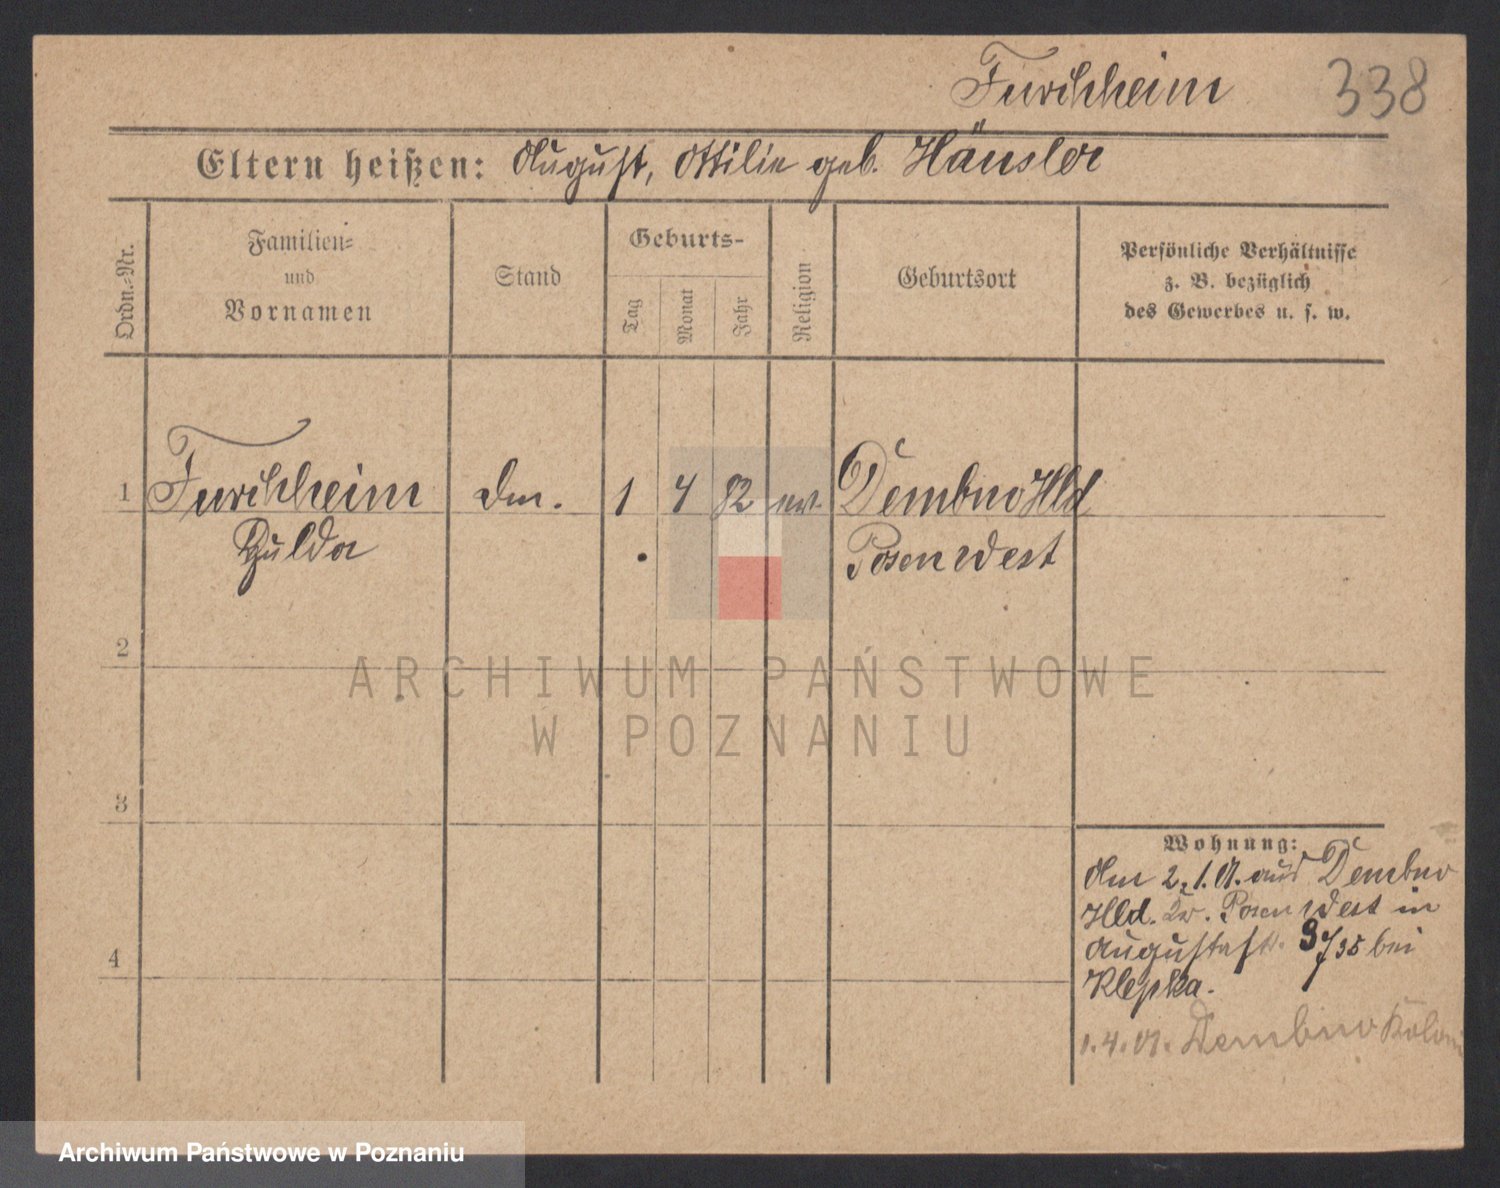 Furchheim 338
Eltern heißen: August, Ottilie geb. Häusler
Ordn.-Nr.
Familien-
und
Vornamen
Stand
Geburts-
Tag
Monat
Jahr
Religion
Geburtsort
Persönliche Verhältnisse
z. B. bezüglich
des Gewerbes u. s. w.
1 Furchheim 1 4 82 ev. Dembno Hld
Hulda Posen West
2
ARCHIWUM PAŃSTWOWE
W POZNANIU
3
4
Wohnung:
Am 2.1.01. aus Dembno
Hld. Kr. Posen West in
Augustastr. 3/35 bei
Klepka.
1.4.01. Dembno Koloni
Archiwum Państwowe w Poznaniu